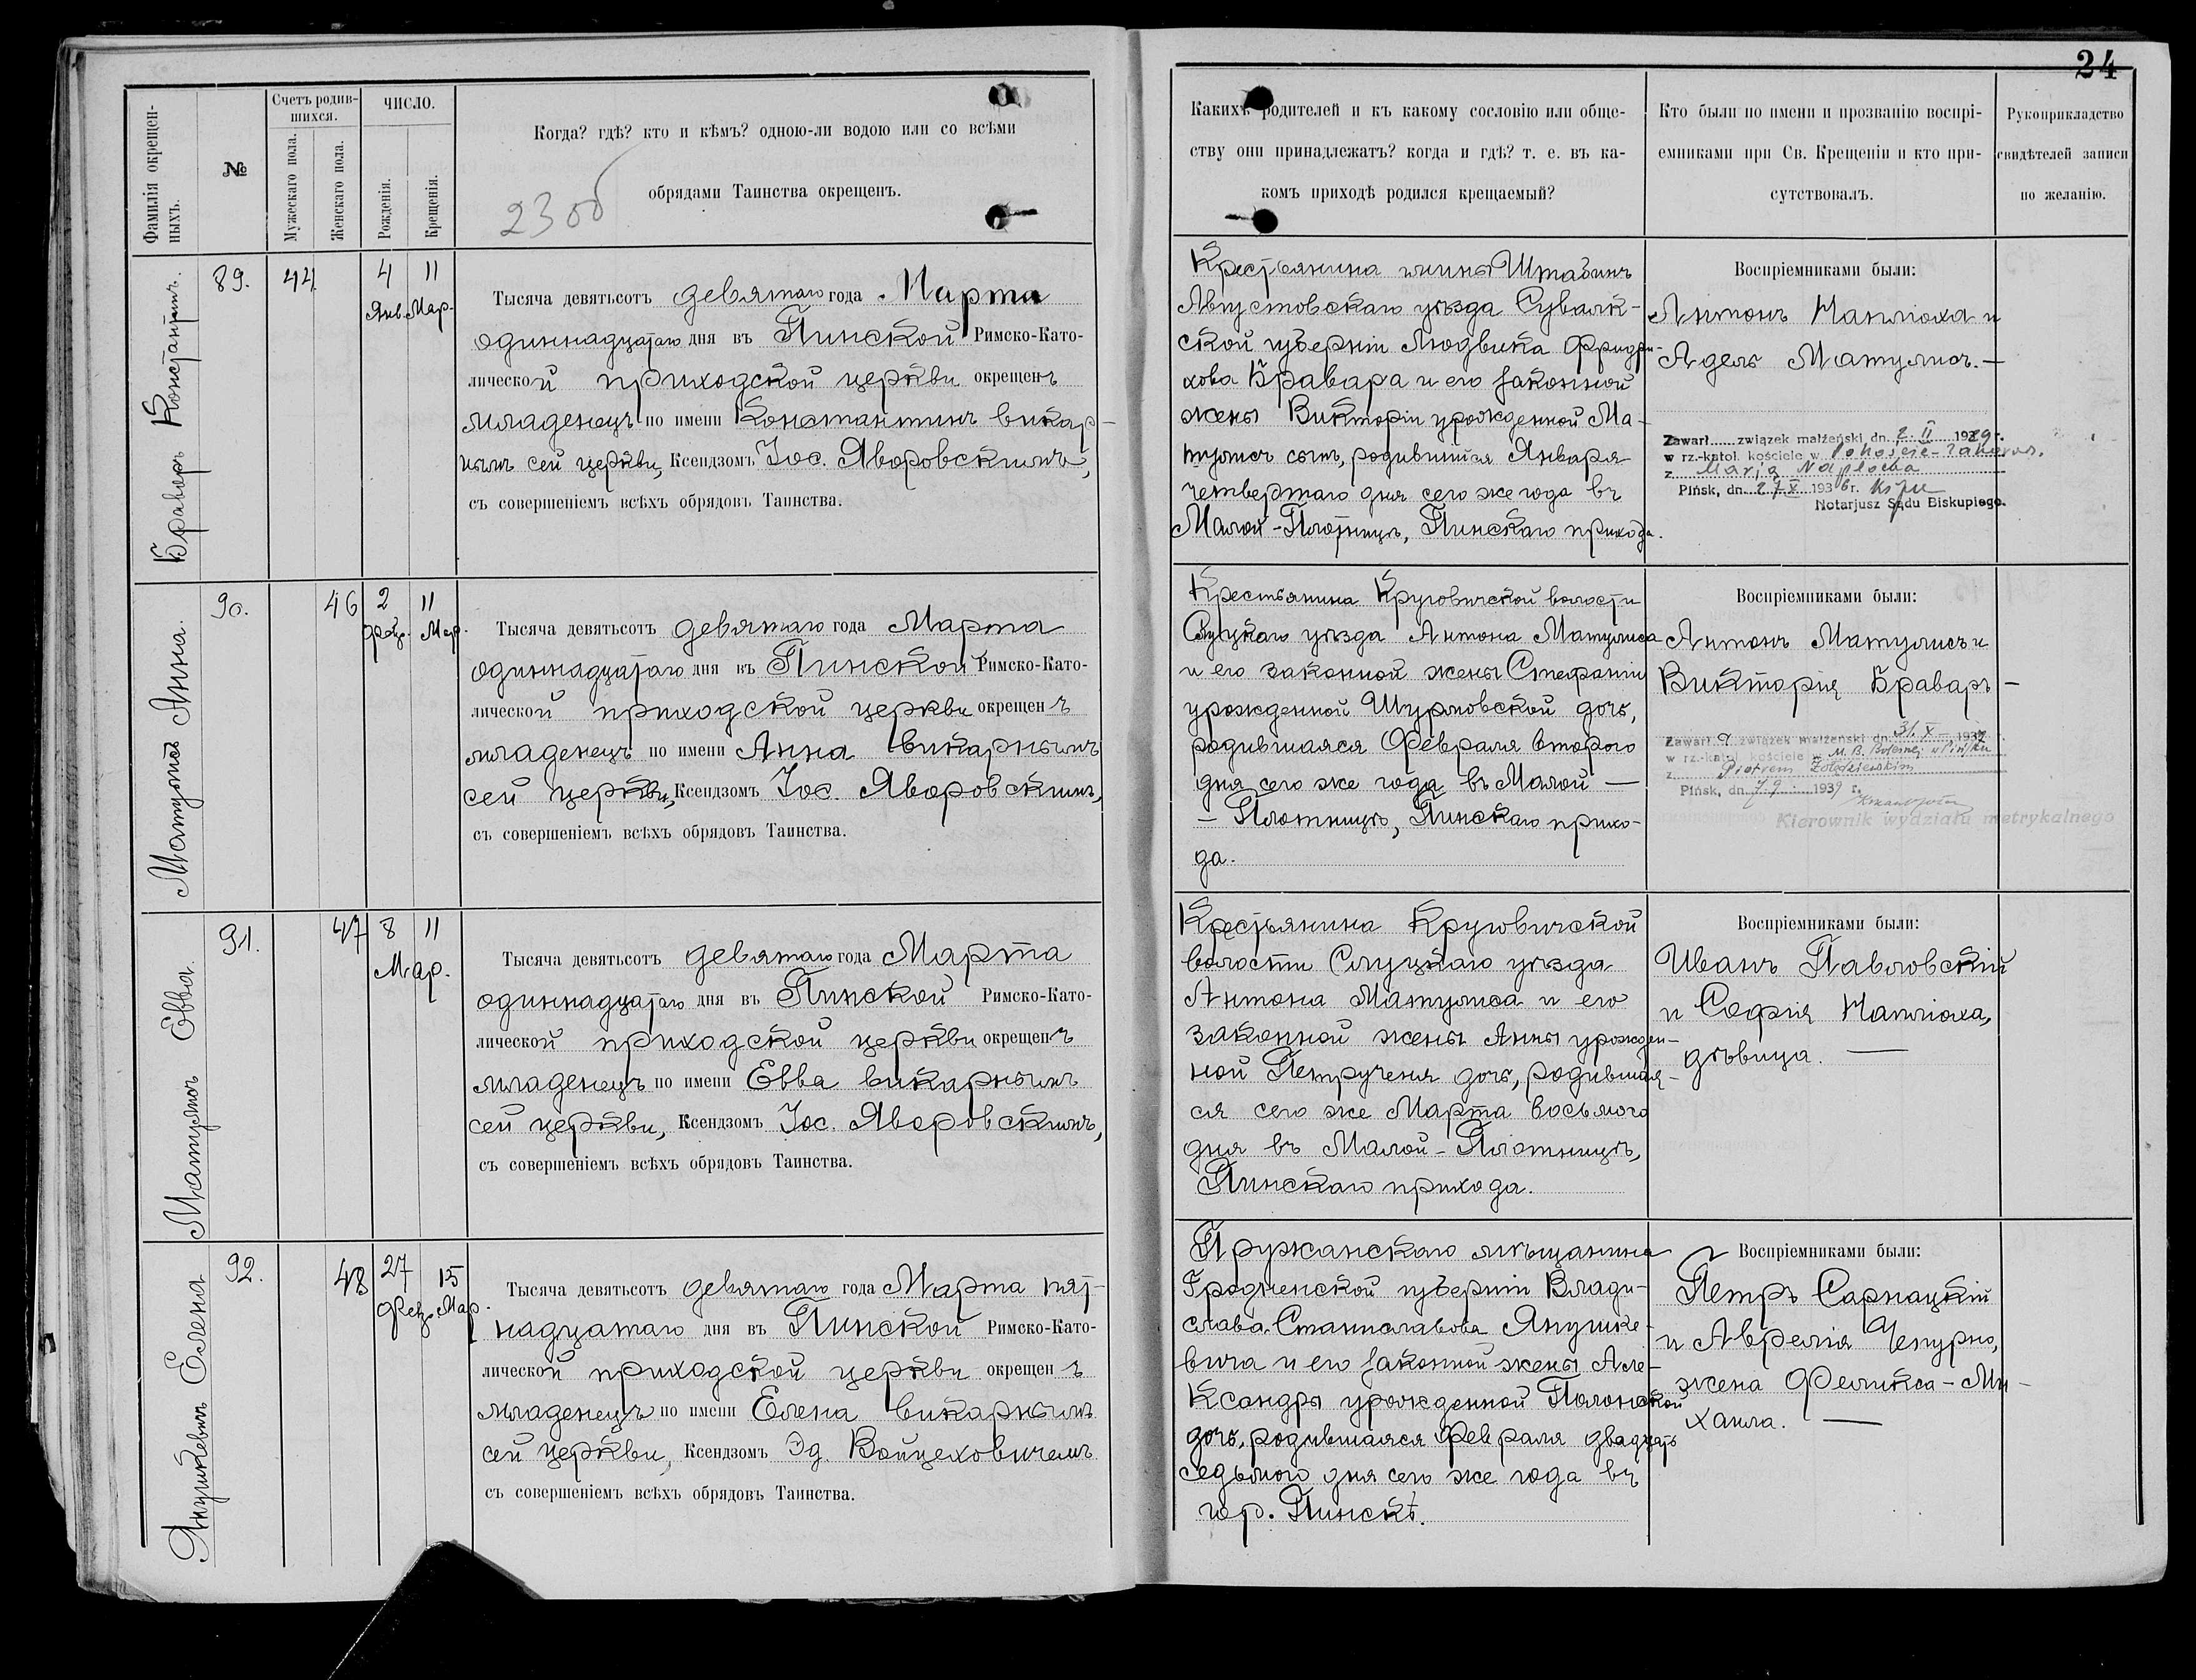 24
Фамилія окрещен-
ныхъ.
№
Счетъ родив-
шихся.
Мужескаго пола.
Женскаго пола.
ЧИСЛО.
Рожденія.
Крещенія.
Когда? гдѣ? кто и кѣмъ? одною-ли водою или со всѣми
обрядами Таинства окрещенъ.
2300
Какихъ родителей и къ какому сословію или обще-
ству они принадлежатъ? когда и гдѣ? т. е. въ ка-
комъ приходѣ родился крещаемый?
Кто были по имени и прозванію воспрі-
емниками при Св. Крещеніи и кто при-
сутствовалъ.
Рукоприкладство
свидѣтелей записи
по желанію.
Браваръ Константинъ.
89.
44
4 11
Янв. Мар.
Тысяча девятьсотъ девятаго года Марта
одиннадцатаго дня въ Пинской Римско-Като-
лической приходской церкви окрещенъ
младенецъ по имени Константинъ викар-
нымъ сей церкви, Ксендзомъ Іос. Яворовскимъ,
съ совершеніемъ всѣхъ обрядовъ Таинства.
Крестьянина гмины Штабинъ
Августовскаго уѣзда Сувалк-
ской губерніи Людвика Фридри-
хова Бравара и его законной
жены Викторіи урожденной Ма-
тулисъ сынъ, родившійся Января
четвертаго дня сего же года въ
Малой-Плотницѣ, Пинскаго прихода.
Воспріемниками были:
Антонъ Наплоха и
Адель Матулисъ. —
Zawarł związek małżeński dn. 2 II 1929 r.
w rz.-katol. kościele w Pohoście-Zahorod.
z Marją Napłocha
Pińsk, dn. 27 X 1936 r.
Notarjusz Sądu Biskupiego.
Матулисъ Анна.
90.
46
2 11
Февр. Мар.
Тысяча девятьсотъ девятаго года Марта
одиннадцатаго дня въ Пинской Римско-Като-
лической приходской церкви окрещенъ
младенецъ по имени Анна викарнымъ
сей церкви, Ксендзомъ Іос. Яворовскимъ,
съ совершеніемъ всѣхъ обрядовъ Таинства.
Крестьянина Круговичской волости
Слуцкаго уѣзда Антона Матулиса
и его законной жены Стефаніи
урожденной Шурловской дочь,
родившаяся Февраля второго
дня сего же года въ Малой —
— Плотницѣ, Пинскаго прихо-
да.
Воспріемниками были:
Антонъ Матулисъ и
Викторія Браваръ —
Zawarła związek małżeński dn. 31 X 1937 r.
w rz.-katol. kościele w M. B. Bolesnej w Pińsku
z Piotrem Żołędziewskim
Pińsk, dn. 7 9 1939 r.
Kierownik wydziału metrykalnego
Матулисъ Евва.
91.
47
8 11
Мар.
Тысяча девятьсотъ девятаго года Марта
одиннадцатаго дня въ Пинской Римско-Като-
лической приходской церкви окрещенъ
младенецъ по имени Евва викарнымъ
сей церкви, Ксендзомъ Іос. Яворовскимъ,
съ совершеніемъ всѣхъ обрядовъ Таинства.
Крестьянина Круговичской
волости Слуцкаго уѣзда
Антона Матулиса и его
законной жены Анны урожден-
ной Петрученя дочь, родившая-
ся сего же Марта восьмого
дня въ Малой-Плотницѣ,
Пинскаго прихода.
Воспріемниками были:
Иванъ Павловскій
и Софія Наплоха,
дѣвица. —
Янушкевичъ Елена
92.
48
27 15
Февр. Мар.
Тысяча девятьсотъ девятаго года Марта пят-
надцатаго дня въ Пинской Римско-Като-
лической приходской церкви окрещенъ
младенецъ по имени Елена викарнымъ
сей церкви, Ксендзомъ Эд. Войцеховичемъ
съ совершеніемъ всѣхъ обрядовъ Таинства.
Пружанскаго мѣщанина
Гродненской губерніи Влади-
слава Станиславова Янушке-
вича и его законной жены Але-
ксандры урожденной Полонской
дочь, родившаяся Февраля двадцать
седьмого дня сего же года въ
гор. Пинскѣ.
Воспріемниками были:
Петръ Сарнацкій
и Аврелія Чепурно,
жена Феликса-Ми-
хаила. —